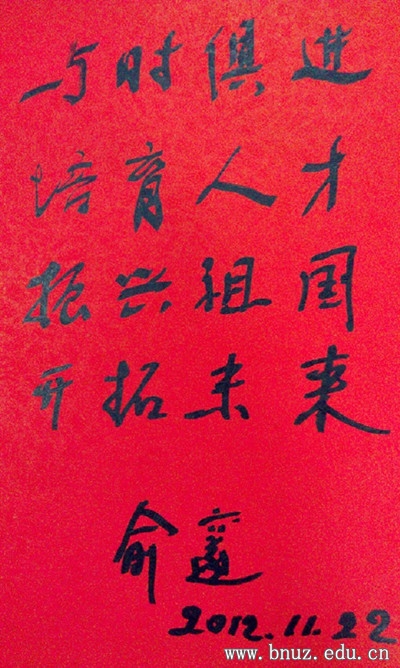 与时俱进
培育人才
振兴祖国
开拓未来
俞邃
2012.11.22
www.bnuz.edu.cn